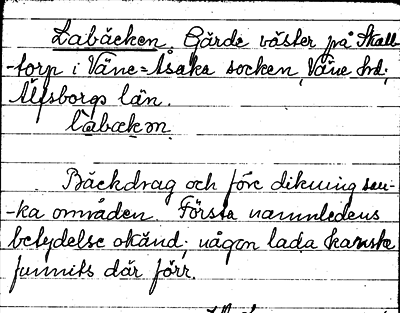 Labäcken. Gärde väster på Skall-
-torp i Väne-Åsaka socken, Väne hd,
Älfsborgs län.
Labækən
Bäckdrag och före dikning san-
-ka områden. Första namnledens
betydelse okänd; någon lada kanske
funnits där förr.